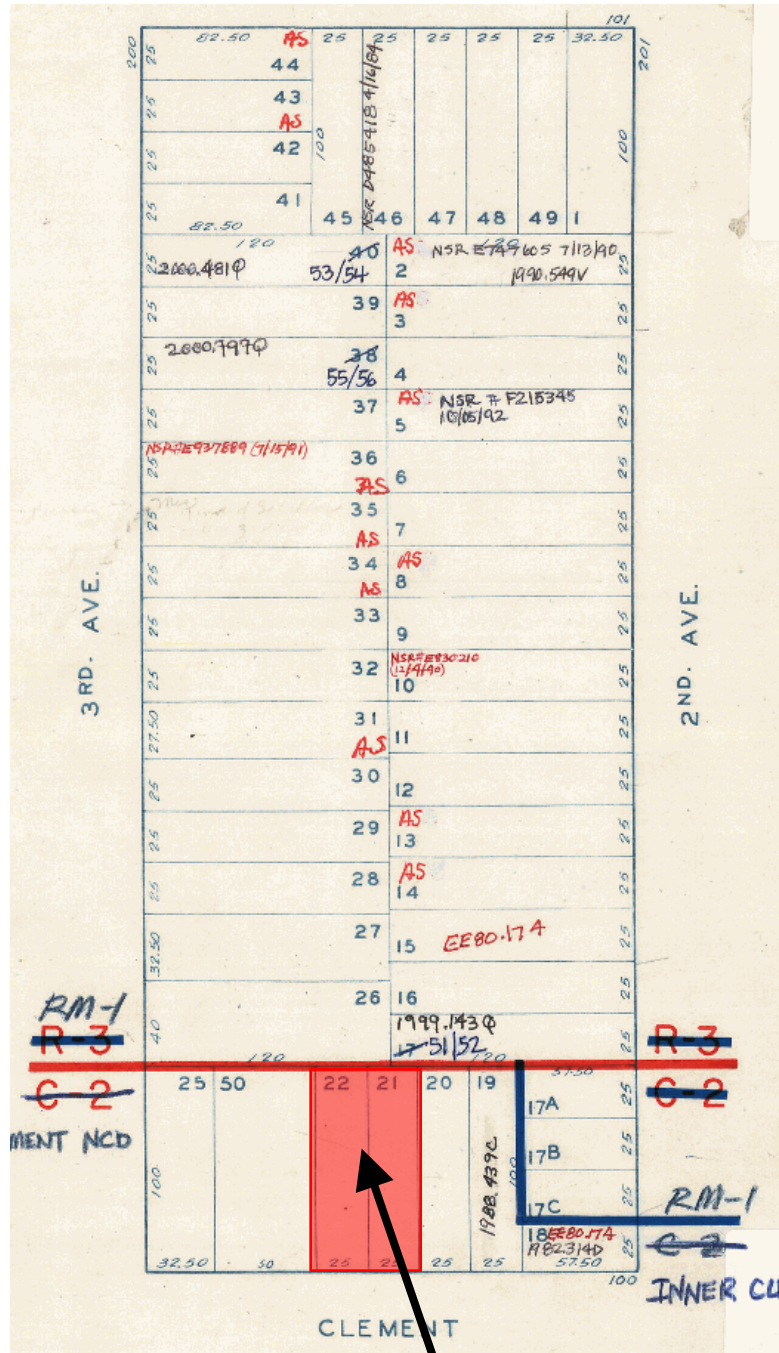 101
200 82.50 AS 25 25 25 25 25 32.50 201
25 44
25 43
AS
25 42
25 41
82.50
100
NSR D485418 4/16/84
100
45 46 47 48 49 1
120 120
25 2000.481Q 40 53/54
AS 2 NSR E747605 7/13/90 1990.549V 25
25 39 AS 3 25
25 2000.797Q 38 55/56 4 25
25 37 AS 5 NSR # F215345 10/05/92 25
NSR#E937889 (7/15/91)
25 36 AS 6 25
25 35 AS 7 25
25 34 AS AS 8 25
25 33 9 25
25 32 NSR#E830210 (12/4/90) 10 25
27.50 31 AS 11 25
25 30 12 25
25 29 AS 13 25
25 28 AS 14 25
32.50 27 15 EE80.17A 25
40 26 16 25
1999.143Q
17 51/52 25
120 120
3RD. AVE.
2ND. AVE.
RM-1
R-3 R-3
C-2 C-2
MENT NCD
25 50 22 21 20 19 57.50
17A 25
17B 25
17C 25
100 1988.439C 100
18 EE80.17A
1982.314D 25
32.50 50 25 25 25 25 57.50
100
RM-1
C-2
INNER CL
CLEMENT